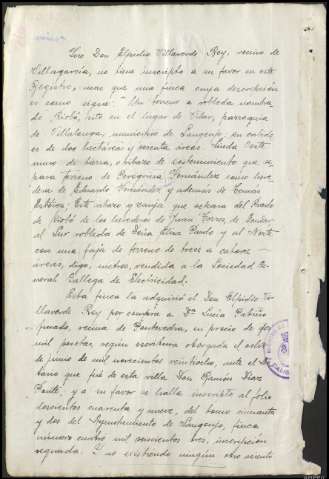 Que Don Elpidio Villaverde Rey, vecino de
Villagarcía, no tiene inscripto a su favor en este
Registro, mas que una finca cuya descripción
es como sigue: Un terreno a robleda nombra
de Riobó, sito en el lugar de Vilar, parroquia
de Villalonga, municipio de Sangenjo, su cabida
es de dos hectáreas y sesenta áreas. Linda Norte
muro de tierra, o ribazo de sostenimiento que se
para terreno de Peregrina Fernández como here
dera de Eduardo Fernández y además de Tomás
Este ribazo y zanja que separa del Prado
de Riobó de los herederos de Juan Torres de
al Sur robleda de Doña Elena Pardo y al Norte
con una faja de terreno de trece a catorce
áreas, digo, metros, vendida a la Sociedad Ge
neral Gallega de Electricidad.
Esta finca la adquirió el Don Elpidio Vi
llaverde Rey por compra a Dª Lucía
vecina de Pontevedra, en precio de
mil pesetas, según escritura otorgada el ocho
de junio de mil novecientos veintiocho, ante el No
tario que fué de esta villa Don Ramón
y a su favor se halla inscrita al folio
doscientos cuarenta y nueve, del tomo
y dos del Ayuntamiento de Sangenjo, finca
número cuatro mil seiscientos tres, inscripción
segunda. Y no existiendo ningún otro asiento